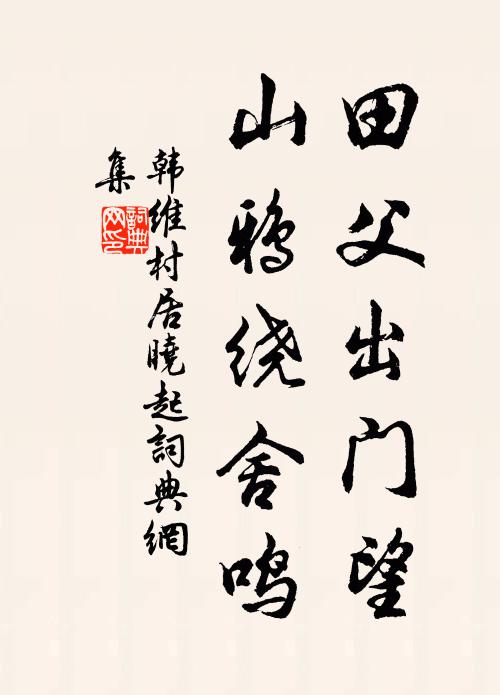 田父出门望
山鸦绕舍鸣
韩维村居曉起詞典網
集
詞典网印